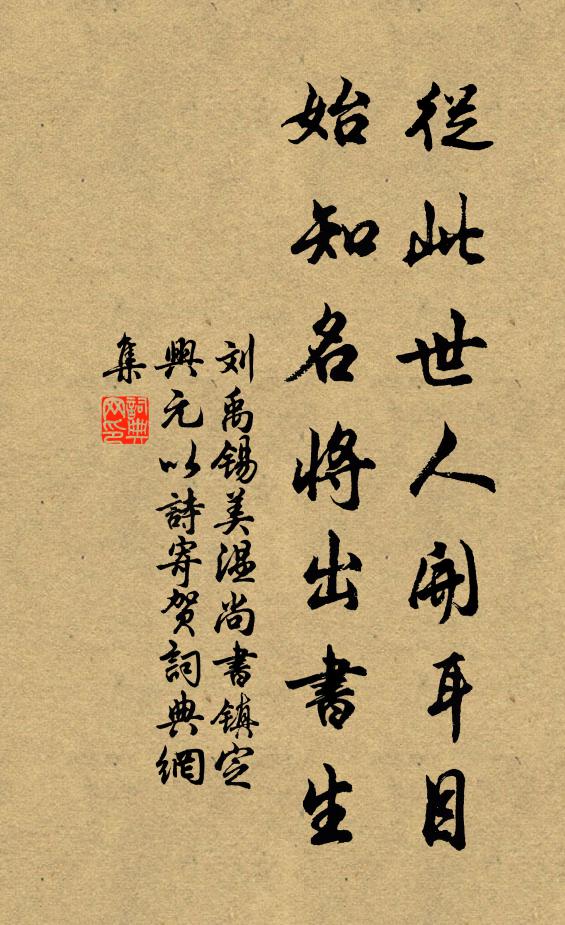 從此世人開耳目
始知名將出書生
刘禹锡美温尚書镇定
興元以詩寄贺詞典網
集
詞典
网印